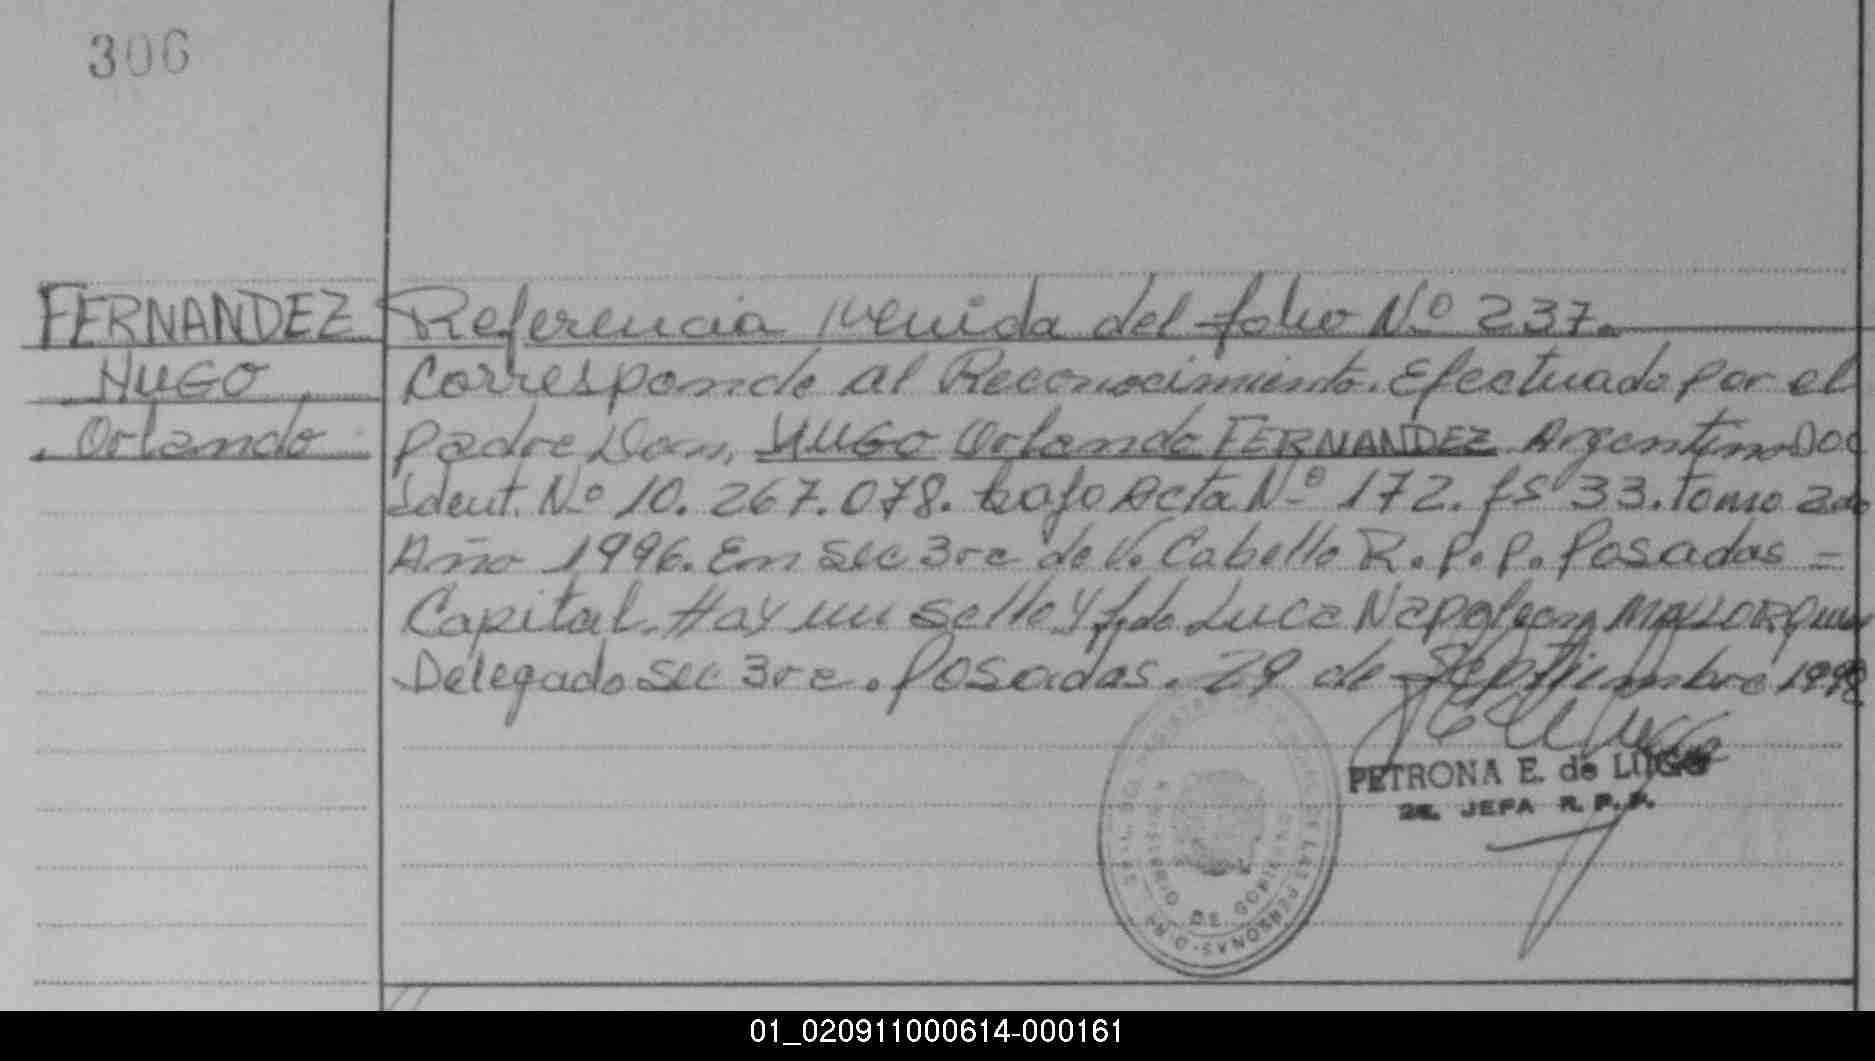 306
FERNANDEZ
HUGO
Orlando
Referencia venida del folio Nº 237.
Corresponde al Reconocimiento. Efectuado por el
padre Don, HUGO Orlando FERNANDEZ Argentino Doc
Ident. Nº 10.267.078. bajo Acta Nº 172. fs 33. Tomo 2do
Año 1996. En Sec 3ra de V. Cabello R. P. P. Posadas =
Capital. Hay un sello y fdo Luca Napoleon MALLORQUIN
Delegado Sec 3ra. Posadas. 29 de Septiembre 1998
PETRONA E. de LUGO
2a. JEFA R. P. P.
DE LAS PERSONAS
MINISTERIO DE GOBIERNO
01_020911000614-000161